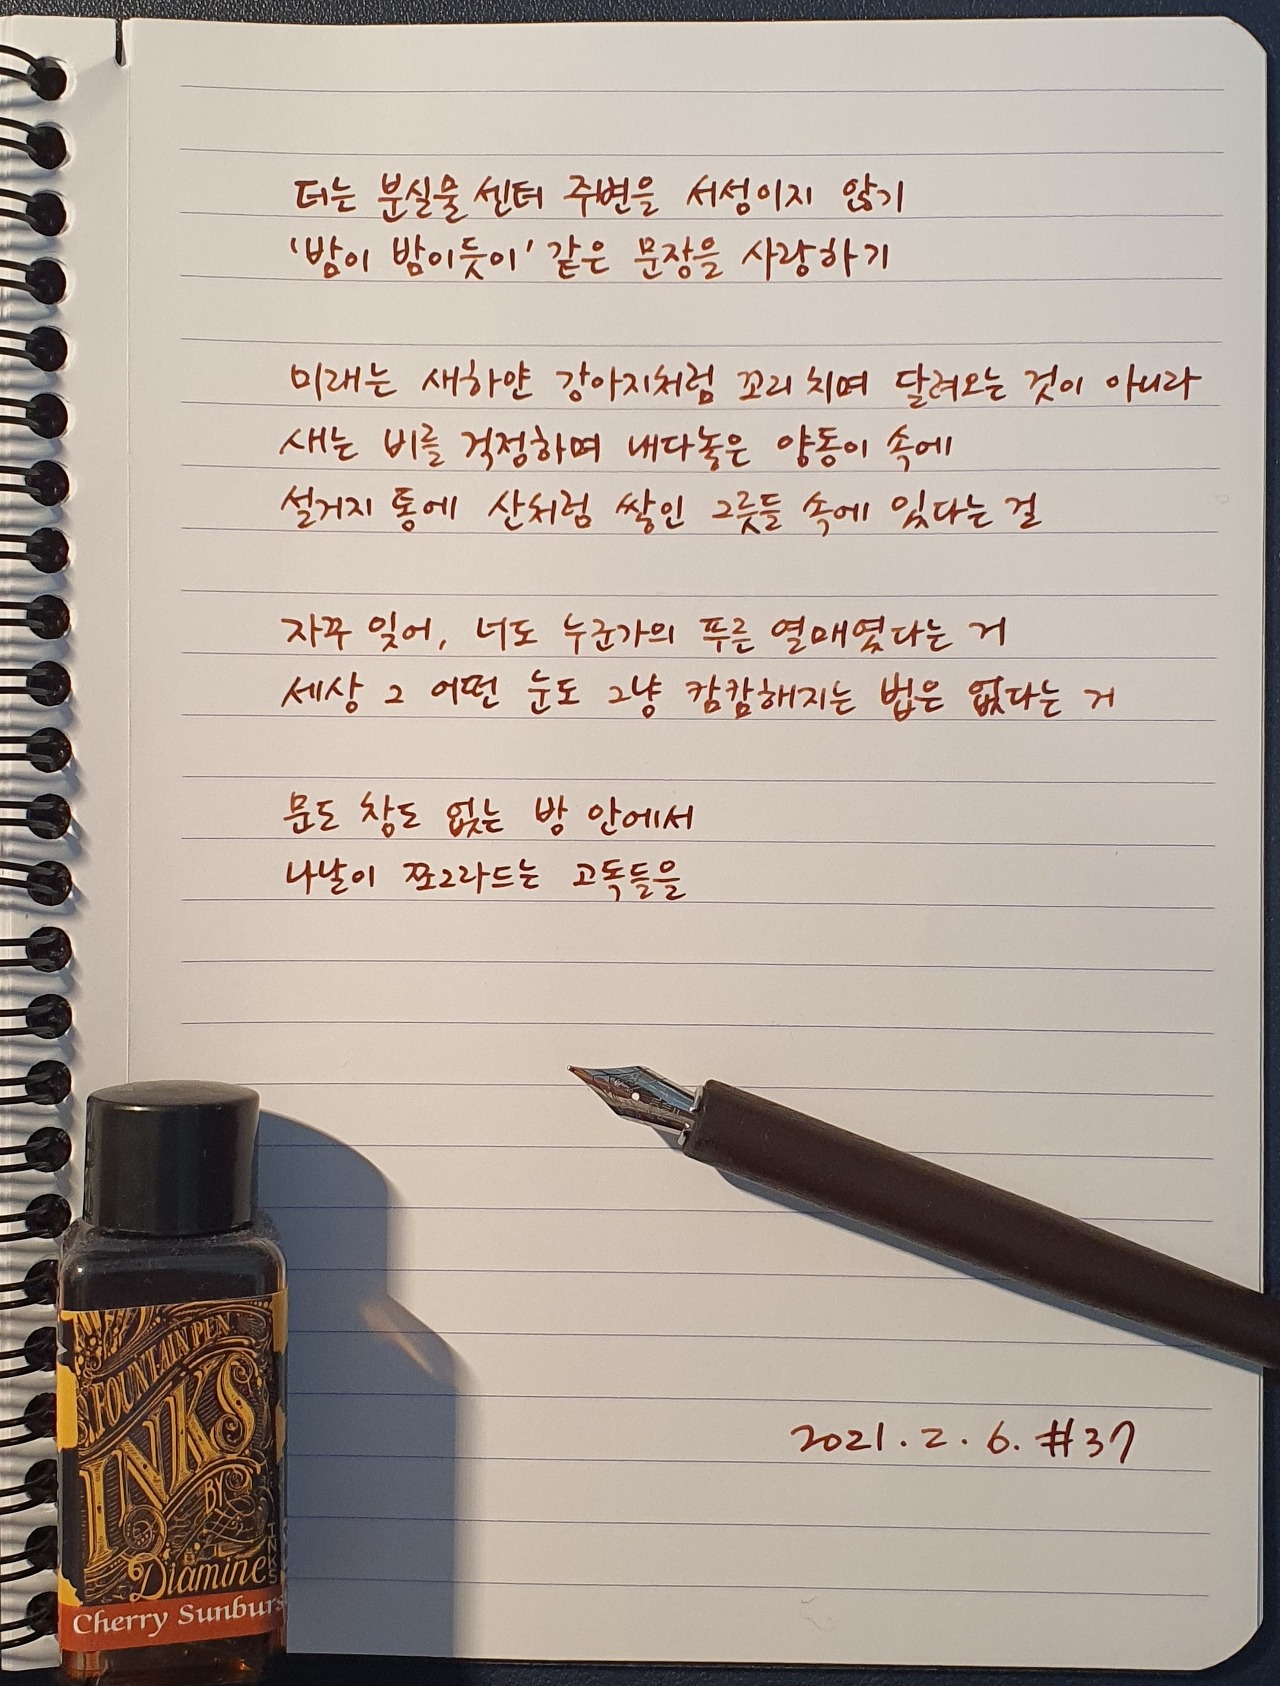 더는 분실물 센터 주변을 서성이지 않기
'밤이 밤이듯이' 같은 문장을 사랑하기
미래는 새하얀 강아지처럼 꼬리 치며 달려오는 것이 아니라
새는 비를 걱정하며 내다놓은 양동이 속에
설거지통에 산처럼 쌓인 그릇들 속에 있다는 걸
자꾸 잊어, 너도 누군가의 푸른 열매였다는 거
세상 그 어떤 눈도 그냥 캄캄해지는 법은 없다는 거
문도 창도 없는 방 안에서
나날이 쪼그라드는 고독들을
2021. 2. 6. #37
FOUNTAIN PEN
INKS
BY
Diamine
INKS
Cherry Sunburs